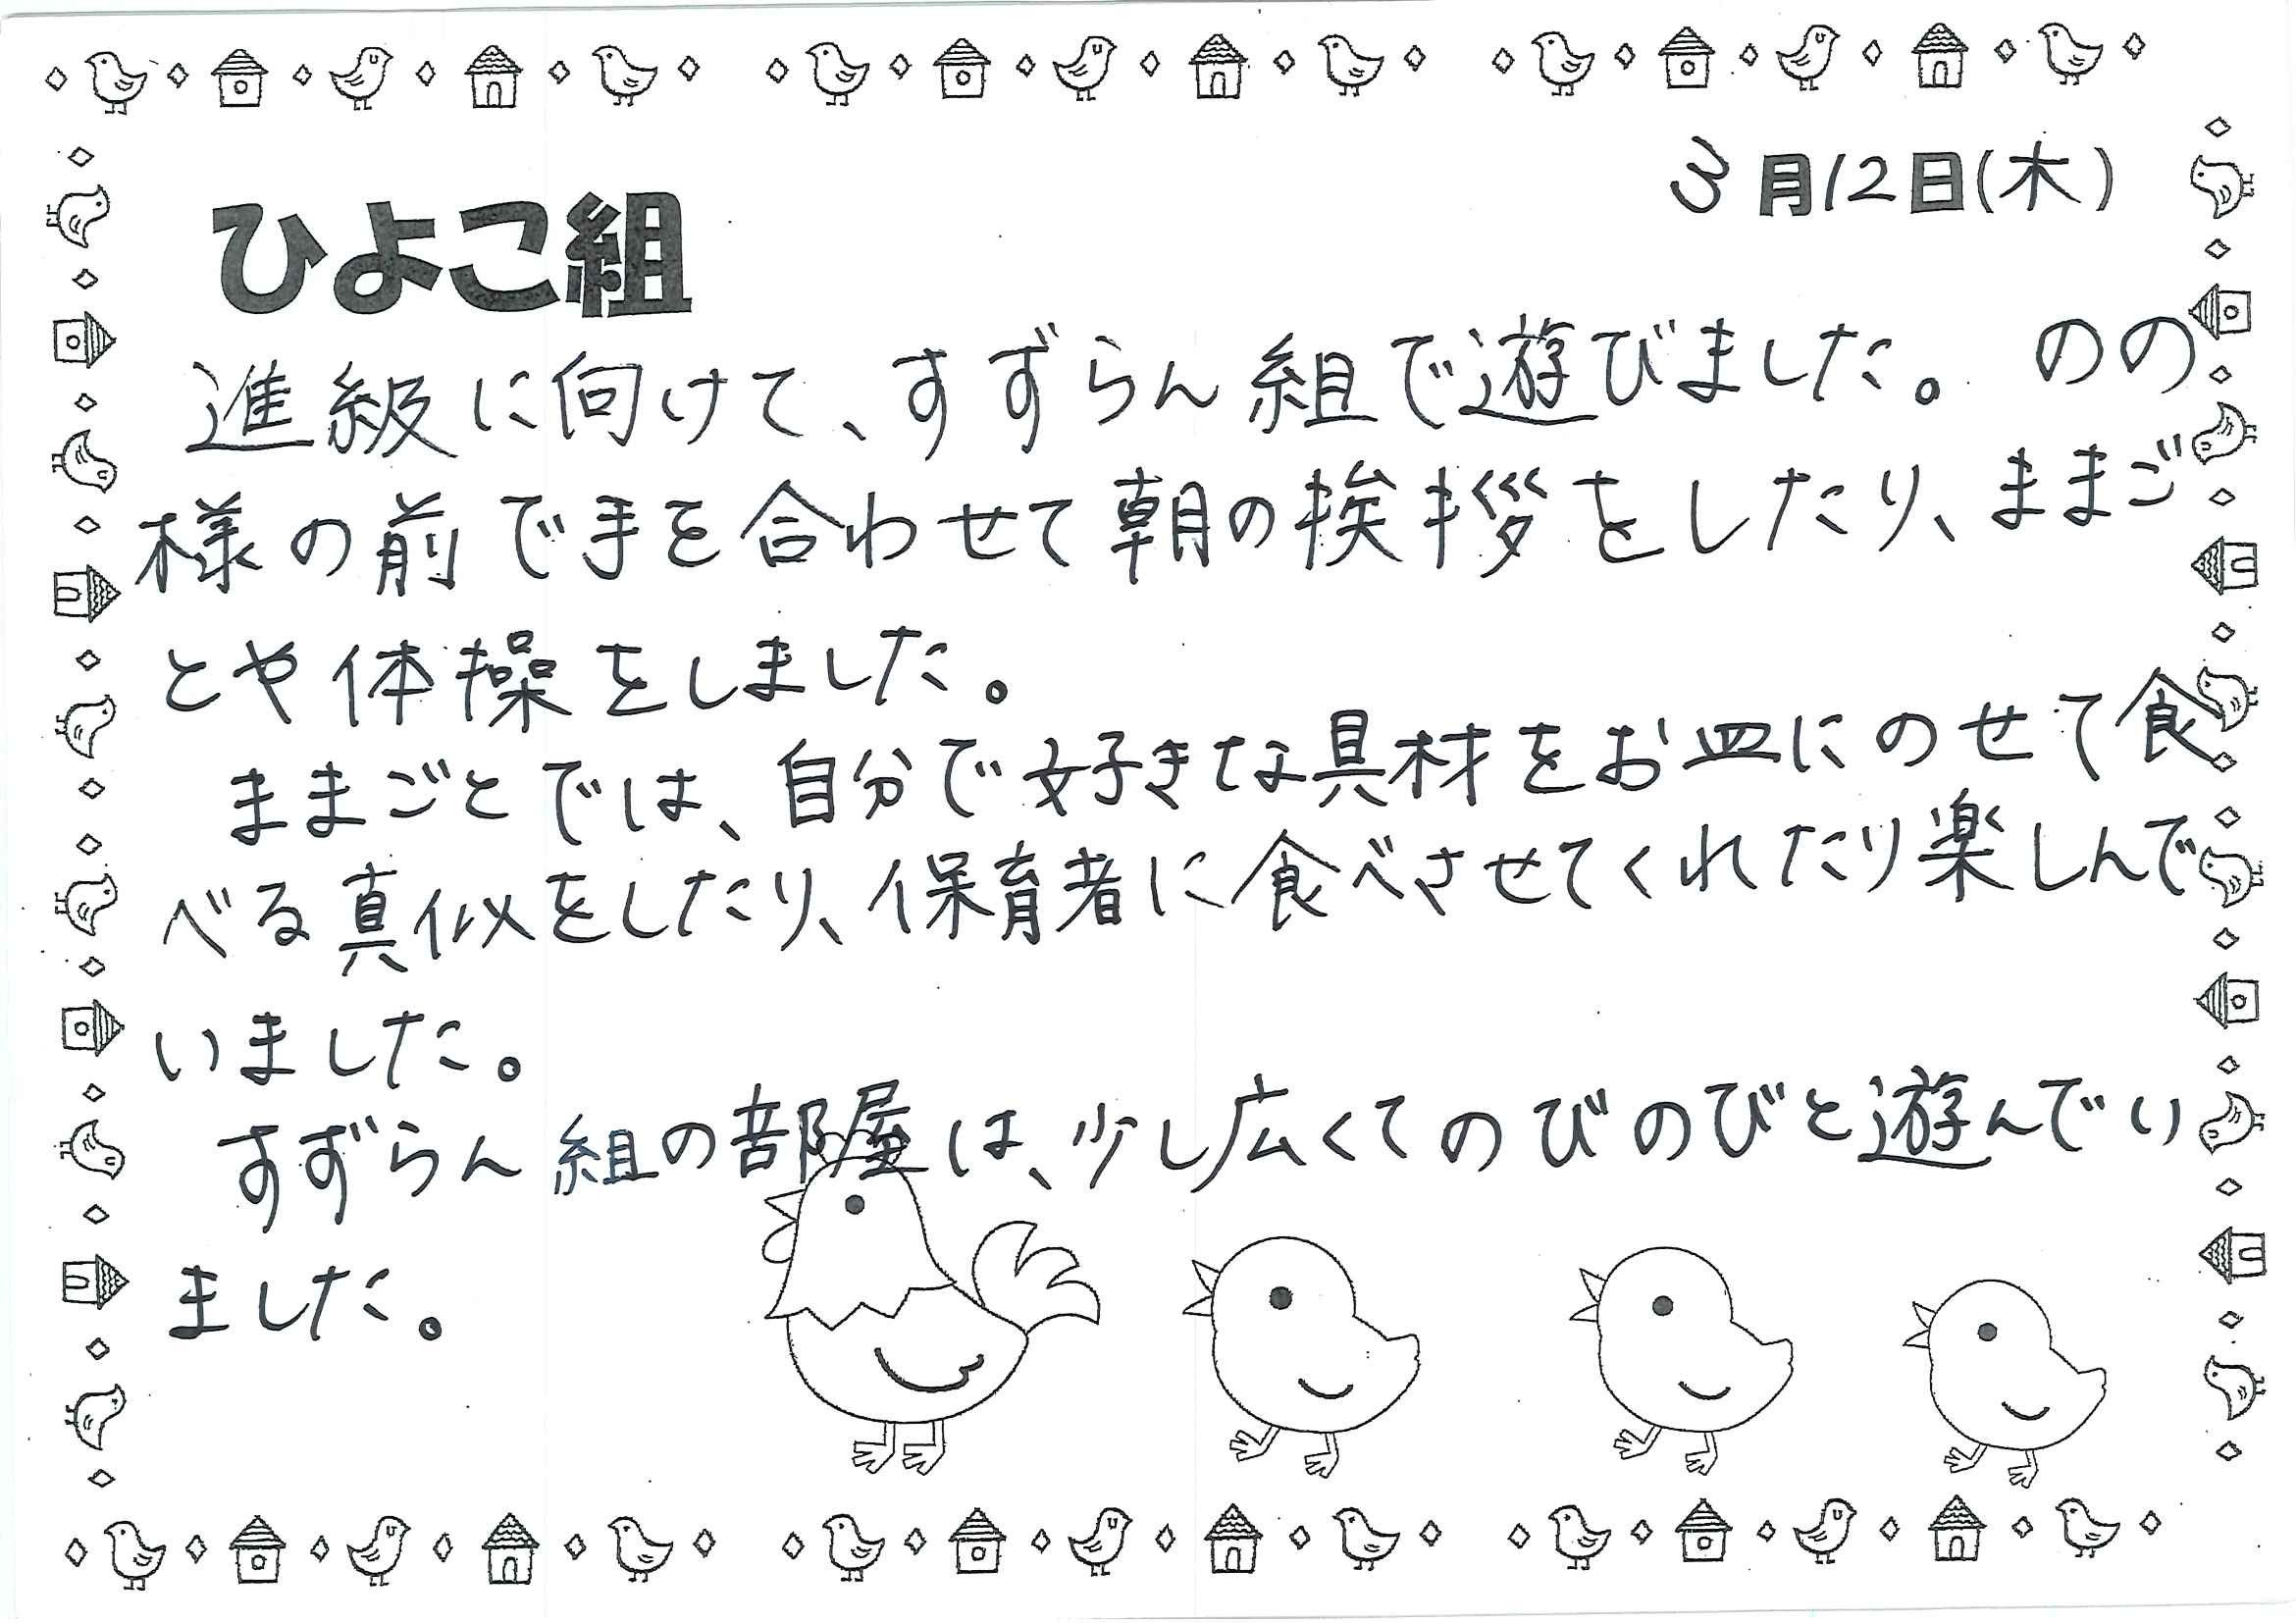 3月12日(木)
ひよこ組
進級に向けて、すずらん組で遊びました。のの
様の前で手を合わせて朝の挨拶をしたり、ままご
とや体操をしました。
ままごとでは、自分で好きな具材をお皿にのせて食
べる真似をしたり、保育者に食べさせてくれたり楽しんで
いました。
すずらん組の部屋は、少し広くてのびのびと遊んでい
ました。